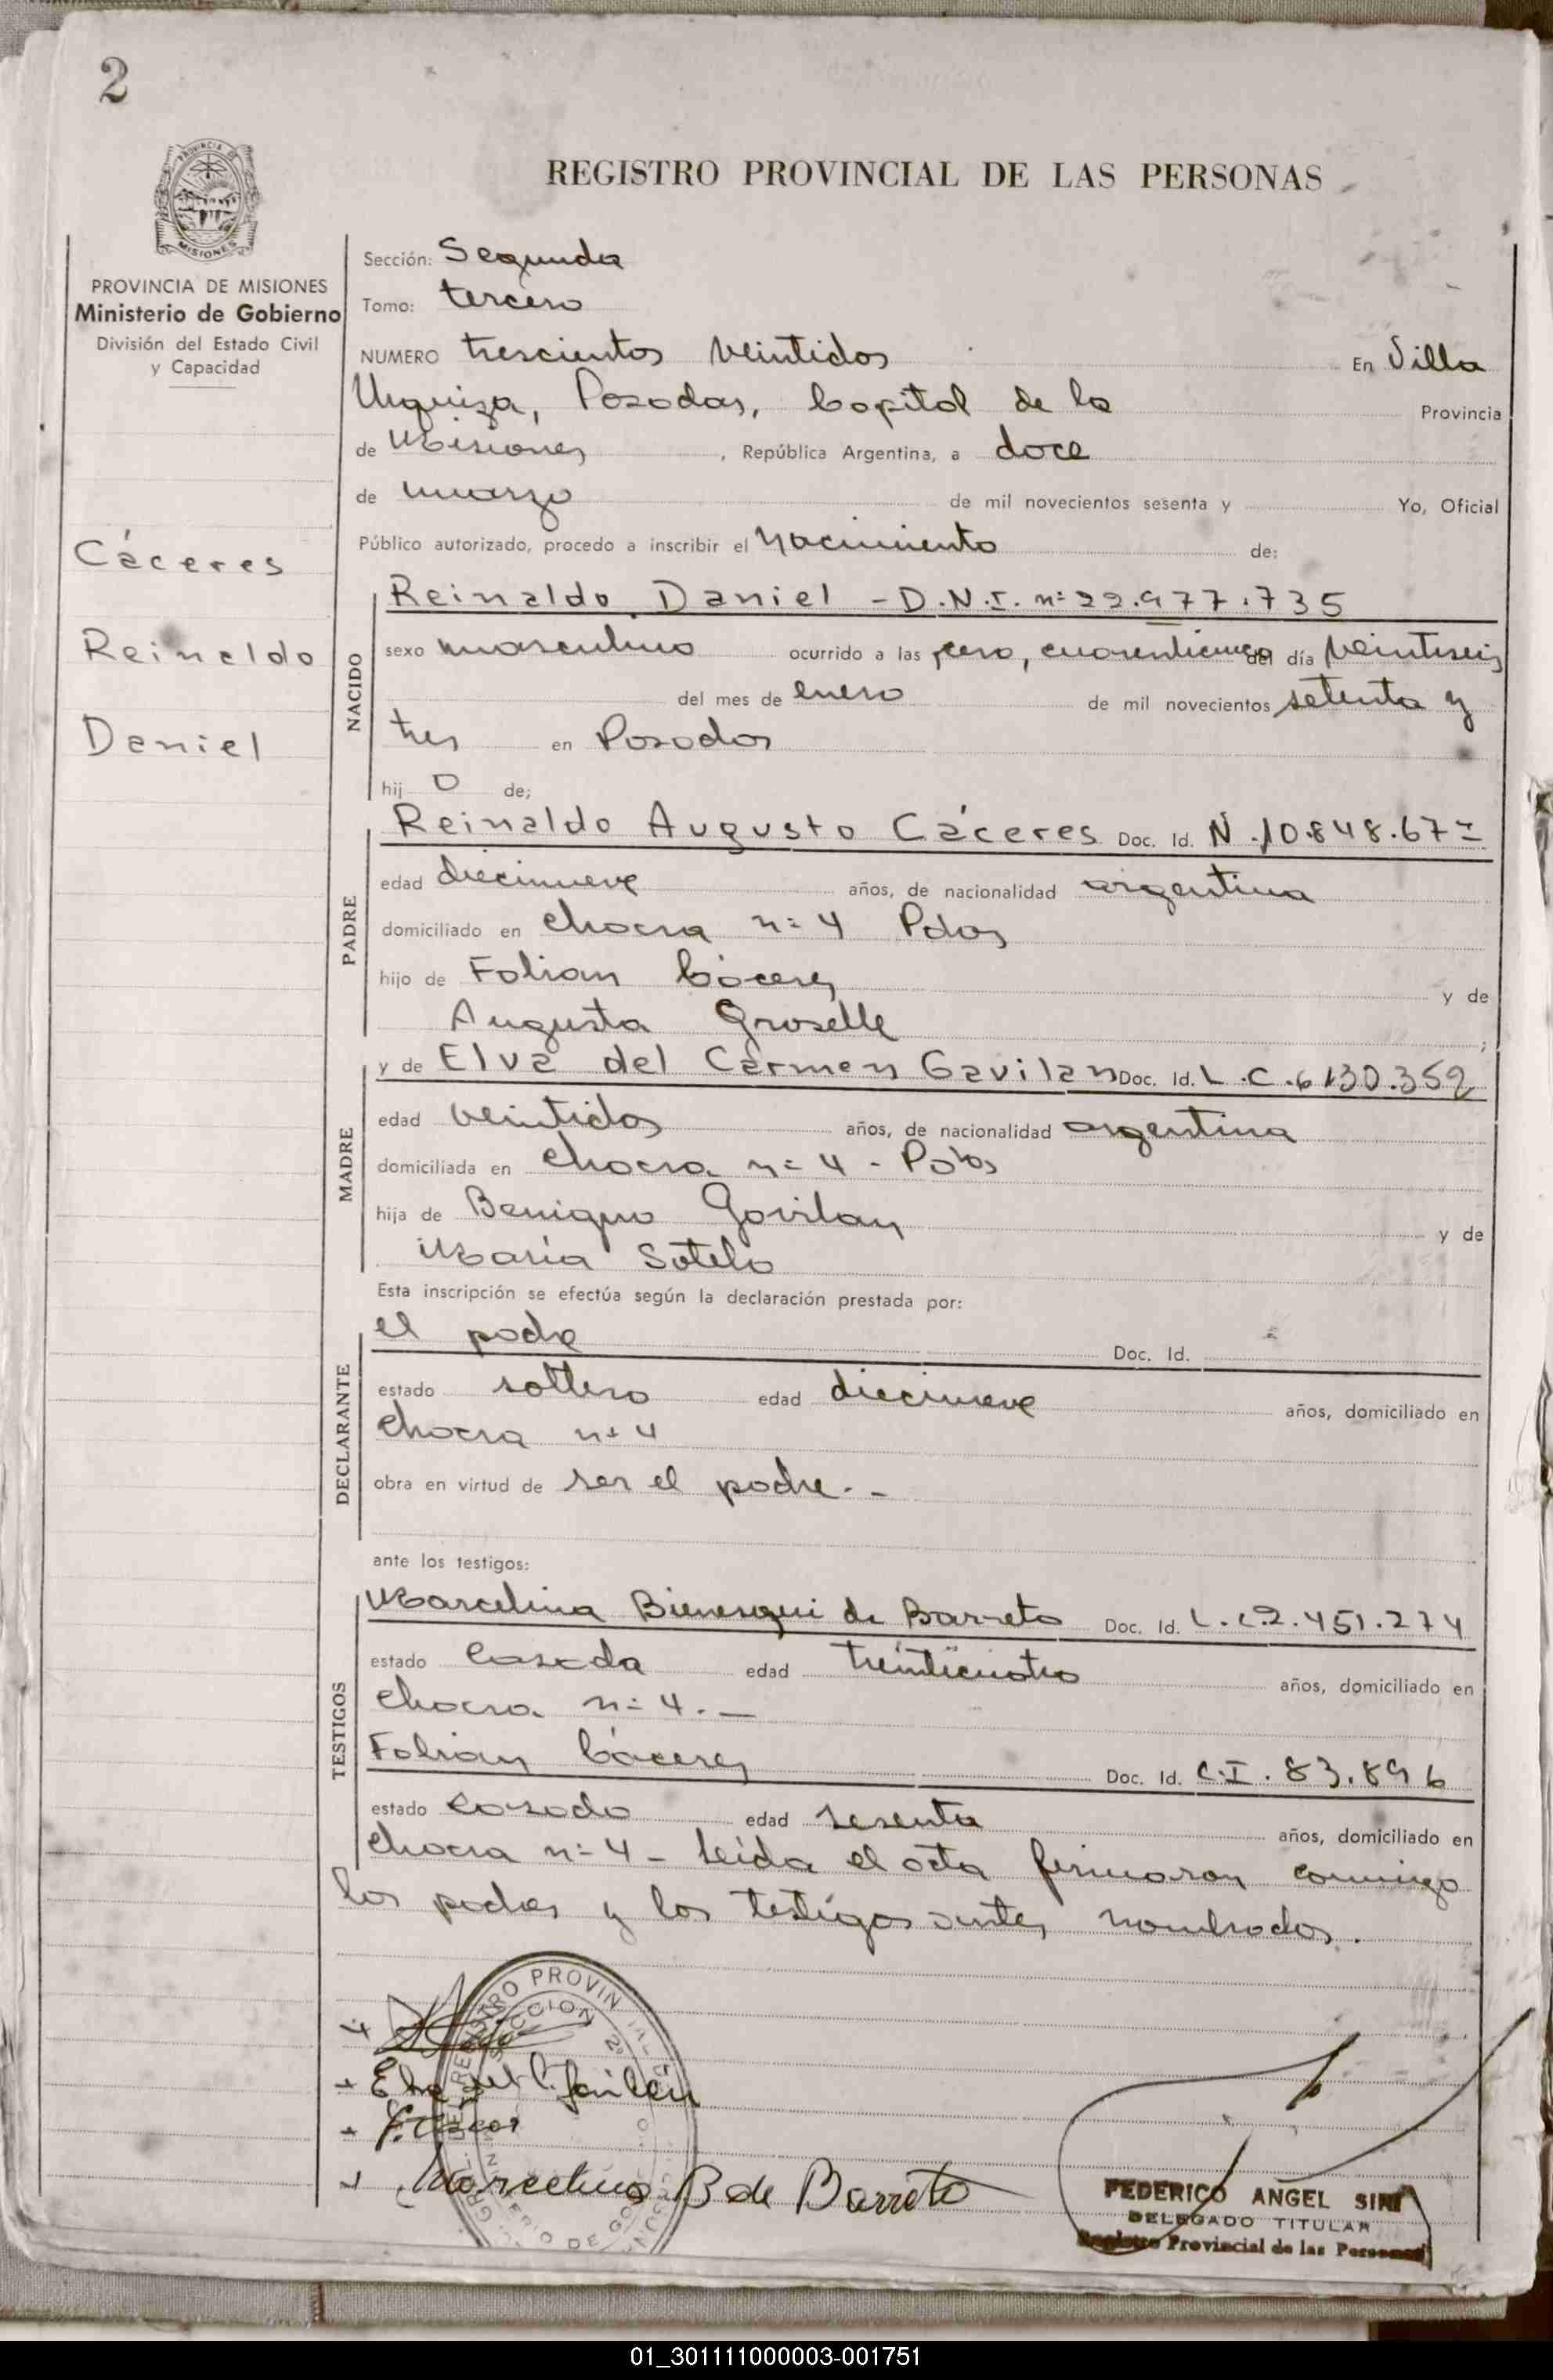 2
REGISTRO PROVINCIAL DE LAS PERSONAS
MISIONES
PROVINCIA DE MISIONES
Ministerio de Gobierno
División del Estado Civil
y Capacidad
Cáceres
Reinaldo
Daniel
Sección: Segunda
Tomo: tercero
NUMERO trescientos veintidos En Villa
Urquiza, Posadas, Capital de la Provincia
de Misiones, República Argentina, a doce
de marzo de mil novecientos sesenta y Yo, Oficial
Público autorizado, procedo a inscribir el Nacimiento de:
NACIDO
Reinaldo Daniel - D.N.I. nº 22.977.735
sexo masculino ocurrido a las cero, cuarenticinco del día veintiseis
del mes de enero de mil novecientos setenta y
tres en Posadas
hij o de;
PADRE
Reinaldo Augusto Cáceres Doc. Id. N.10.848.67
edad diecinueve años, de nacionalidad argentina
domiciliado en Chacra nº 4 Pdas
hijo de Fabian Cáceres y de
Augusta Groselle ;
MADRE
y de Elva del Carmen Gavilan Doc. Id. L.C.6130.352
edad veintidos años, de nacionalidad argentina
domiciliada en Chacra nº 4 - Pdas
hija de Benigno Gavilan y de
María Sotelo
Esta inscripción se efectúa según la declaración prestada por:
DECLARANTE
el padre Doc. Id.
estado soltero edad diecinueve años, domiciliado en
Chacra nº 4
obra en virtud de ser el padre. -
ante los testigos:
TESTIGOS
Marcelina Bieneszqui de Barreto Doc. Id. L.C.2.451.274
estado Casada edad treinticuatro años, domiciliado en
Chacra nº 4. —
Fabian Cáceres Doc. Id. C.I. 83.896
estado Casado edad sesenta años, domiciliado en
Chacra nº 4 - Leída el acta firmaron conmigo
los padres y los testigos antes nombrados.
REGISTRO PROVINCIAL
SECCION 2ª
Elva del C. Gavilán
Marcelina B de Barreto
FEDERICO ANGEL SIRI
DELEGADO TITULAR
Registro Provincial de las Personas
01_301111000003-001751